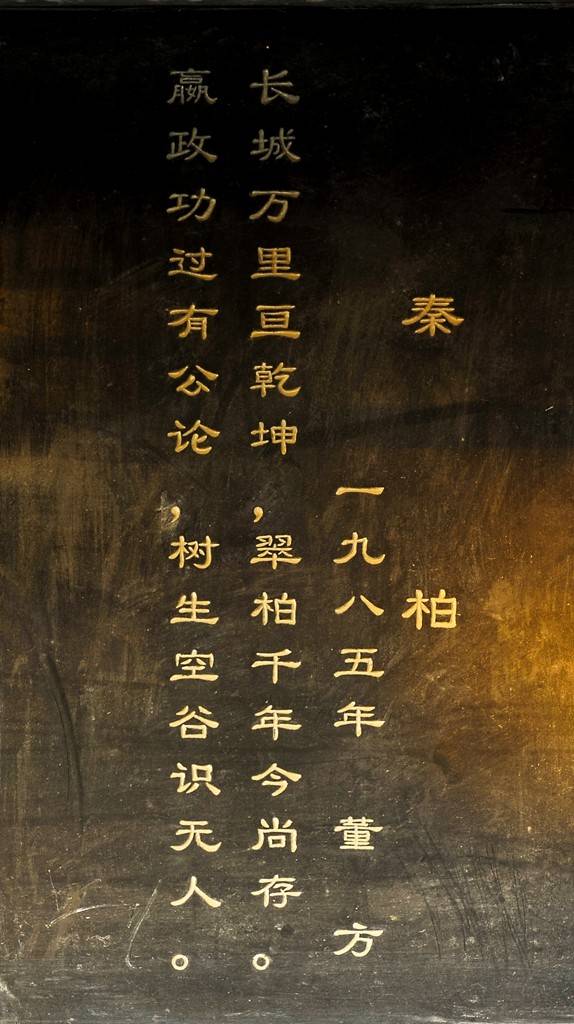 秦柏
一九八五年 董方
长城万里亘乾坤，翠柏千年今尚存。
嬴政功过有公论，树生空谷识无人。